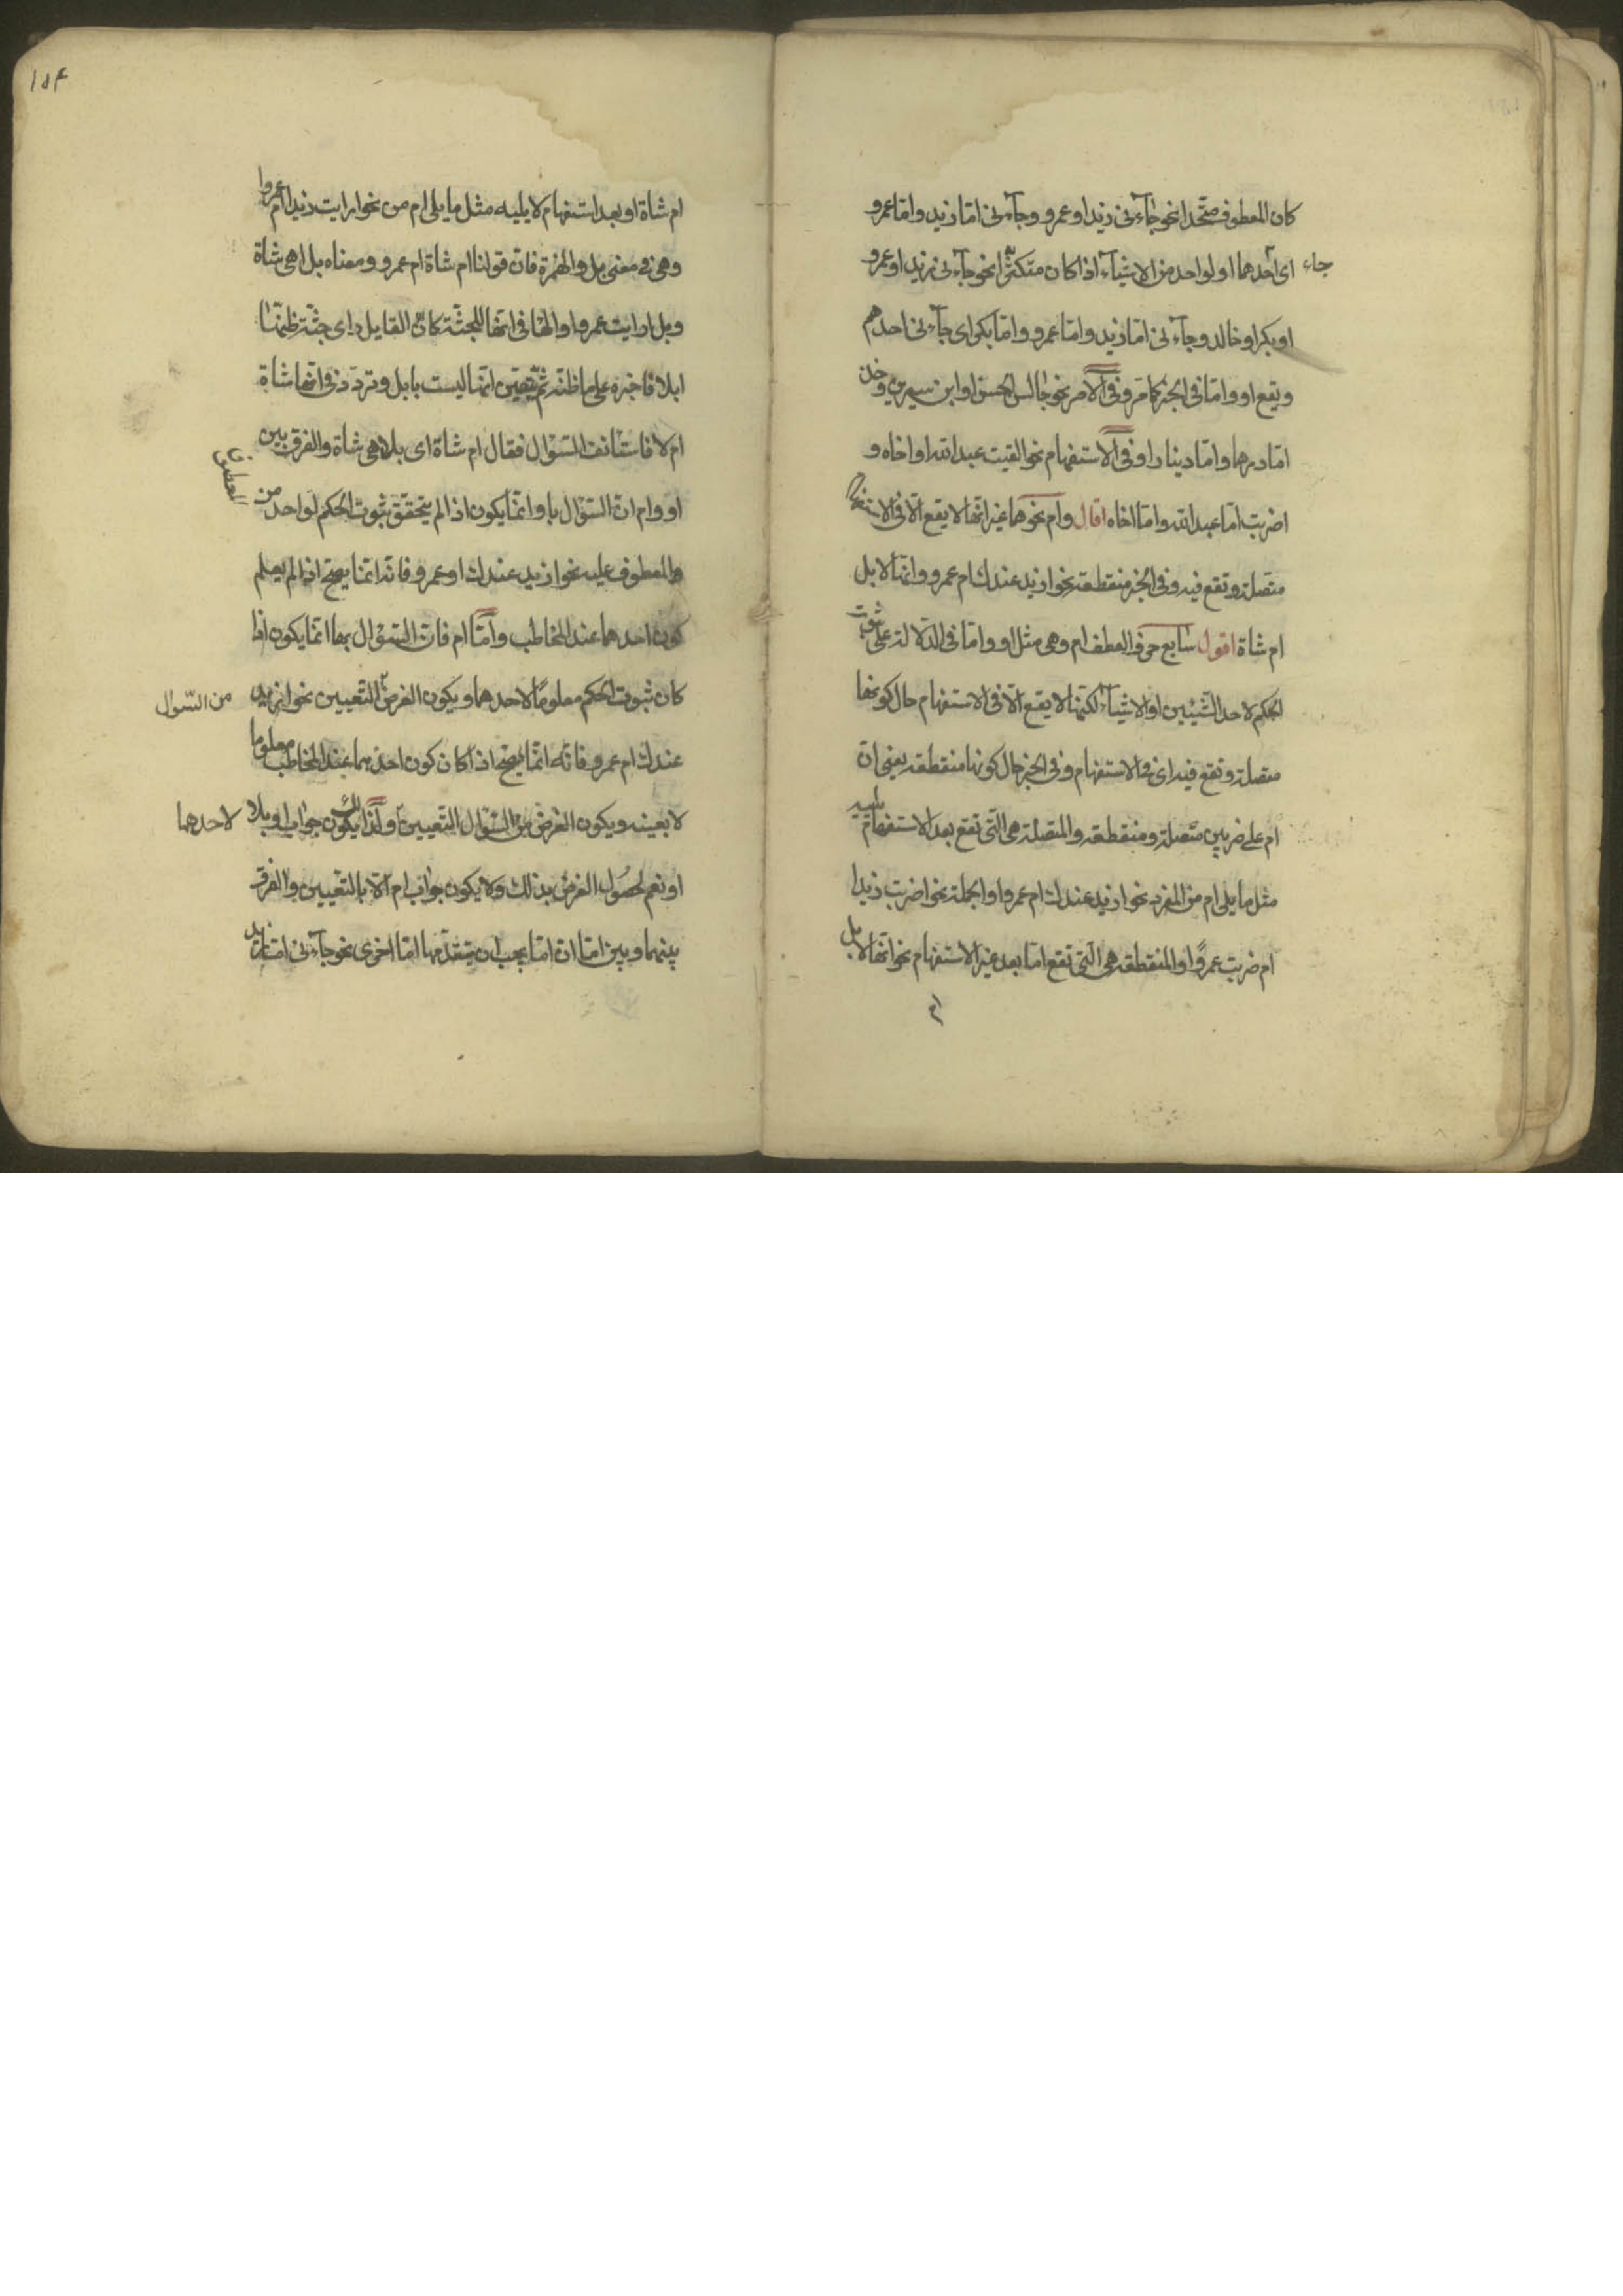 كان المعطوف متّحدا نحو جآءنى زيد او عمرو وجآءنى امّا زيد وامّا عمرو
جاء اى احدهما او لواحد من الاشيآء اذا كان متكثّرا نحو جآءنى زيد او عمرو
او بكر او خالد وجآءنى امّا زيد وامّا عمرو وامّا بكر اى جآءنى احدهم
ويقع او وامّا فى الخبر كما مرّ وفى الامر نحو جالس الحسن او ابن سيرين وخذ
امّا درهما وامّا دينارا وفى الاستفهام نحو القيت عبد الله او اخاه و
اضربت امّا عبد الله وامّا اخاه قال وام نحوهما غير انّها لا يقع الّا فى الاستفهام
متصلة وتقع فيه وفى الخبر منقطعة نحو ازيد عندك ام عمرو وانّها لابل
ام شاة اقول سابع حروف العطف ام وهى مثل او وامّا فى الدّلالة على ثبوت
الحكم لاحد الشّيئين او الاشيآء لكنّها لا يقع الّا فى الاستفهام حال كونها
متصلة وتقع فيه اى فى الاستفهام وفى الخبر حال كونها منقطعة يعنى انّ
ام على ضربين متصلة ومنقطعة والمتصلة هى التى تقع بعد الاستفهام يليه
مثل ما يلى ام من المفرد نحو ازيد عندك ام عمرو او الجملة نحو اضربت زيدا
ام ضربت عمروًا والمنقطعة هى التى تقع امّا بعد غير الاستفهام نحو انّها لابل
ام
١٥٤
ام شاة او بعد استفهام لا يليه مثل ما يلى ام من نحو ارايت زيدا ام عمروا
وهى فى معنى بل والهمزة فانّ قولنا ام شاة ام عمرو ومعناه بل اهى شاة
وبل ارايت عمروا والهآ فى انّها للجثّة كانّ القايل راى جثّة ظنّها
ابلا فاخبره على ما ظنّه ثمّ تيقّن انّها ليست بابل وتردّد فى انّها شاة
ام لا فاستانف السّؤال فقال ام شاة اى بل اهى شاة والفرق بين
او وام انّ السّؤال باو انّما يكون اذا لم يتحقق ثبوت الحكم لواحد من المعطوف
والمعطوف عليه نحو ازيد عندك او عمرو فانّه انّما يصحّ اذا لم يعلم
كون احدهما عند المخاطب وامّا ام فانّ السّؤال بها انّما يكون اذا
كان ثبوت الحكم معلومًا لاحدهما ويكون الغرض التّعيين نحو ازيد
من السّوال
عندك ام عمرو فانّه انّما يصحّ اذا كان كون احدهما عند المخاطب معلوما
لا بعينه ويكون الغرض من السّؤال التّعيين ولذلك يكون جواب او بلا
لاحدهما
او نعم لحصول الغرض بذلك ولا يكون جواب ام الّا بالتّعيين والفرق
بينهما وبين امّا انّ امّا يجب ان يتقدّمها امّا اخرى نحو جآءنى امّا زيد